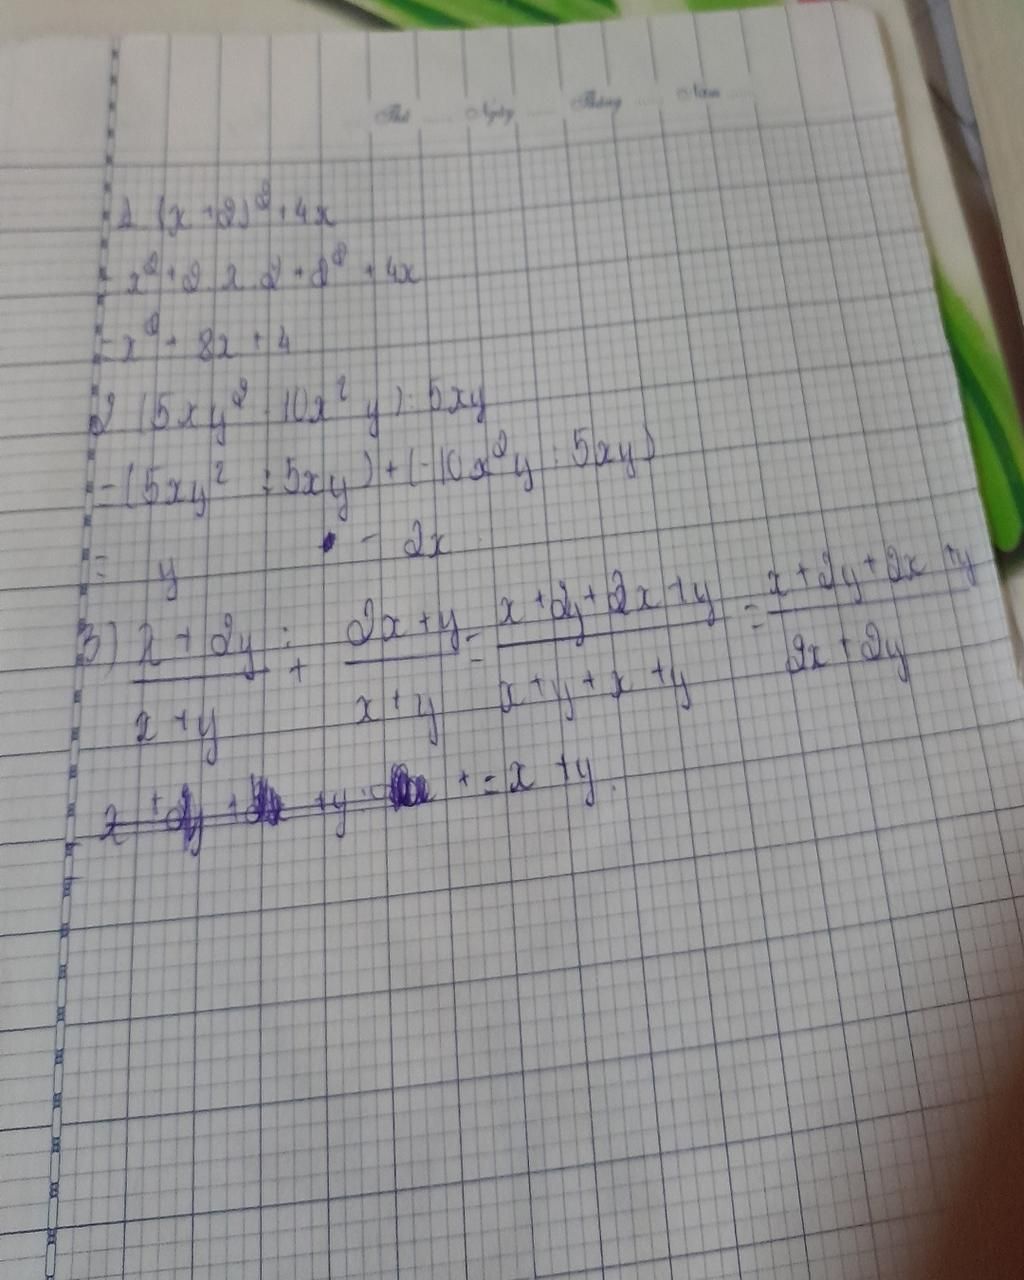 Thứ Ngày Tháng Năm
1 (x + 2)² + 4x
= x² + 2 x 2 + 2² + 4x
= x² + 8x + 4
2 (5xy² 10x² y) : 5xy
= (5xy² : 5xy) + (-10x²y : 5xy)
= y - 2x
3) (x + 2y)/(x + y) + (2x + y)/(x + y) = (x + 2y + 2x + y)/(x + y + x + y) = (x + 2y + 2x + y)/(2x + 2y)
+ = x + y.